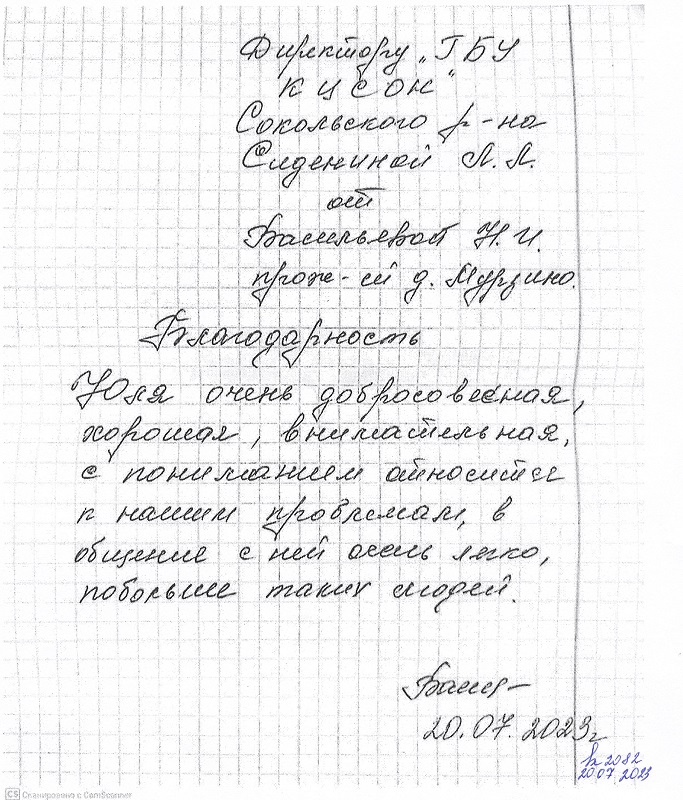 Директору „ГБУ
КЦСОН"
Сокольского р-на
Силениной Л.Л.
от
Васильевой Н.И.
прож-ей д. Мурзино.
Благодарность
Юля очень добросовесная,
хорошая, внимательная,
с пониманием относится
к нашим проблемам, в
общение с ней очень легко,
побольше таких людей.
20.07.2023г
2082
20.07.2023
CS Сканировано с CamScanner